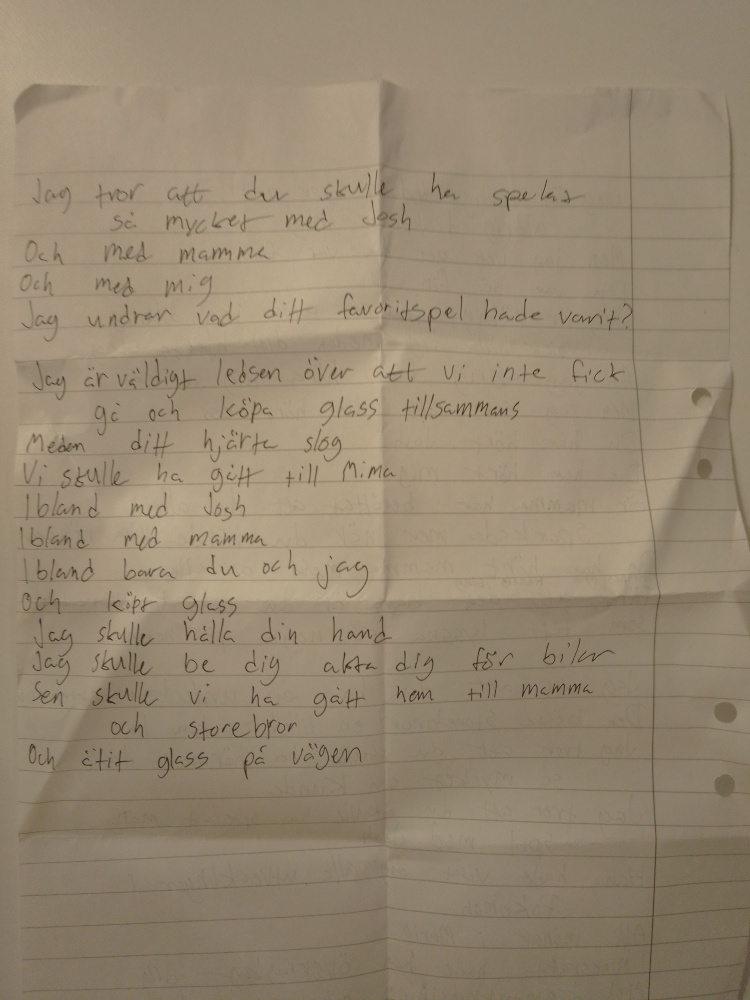 Jag tror att du skulle ha spelat
så mycket med Josh
Och med mamma
Och med mig
Jag undrar vad ditt favoritspel hade varit?
Jag är väldigt ledsen över att vi inte fick
gå och köpa glass tillsammans
Meden ditt hjärta slog
Vi skulle ha gått till Mima
Ibland med Josh
Ibland med mamma
Ibland bara du och jag
Och köpt glass
Jag skulle hålla din hand
Jag skulle be dig akta dig för bilar
Sen skulle vi ha gått hem till mamma
och storebror
Och ätit glass på vägen